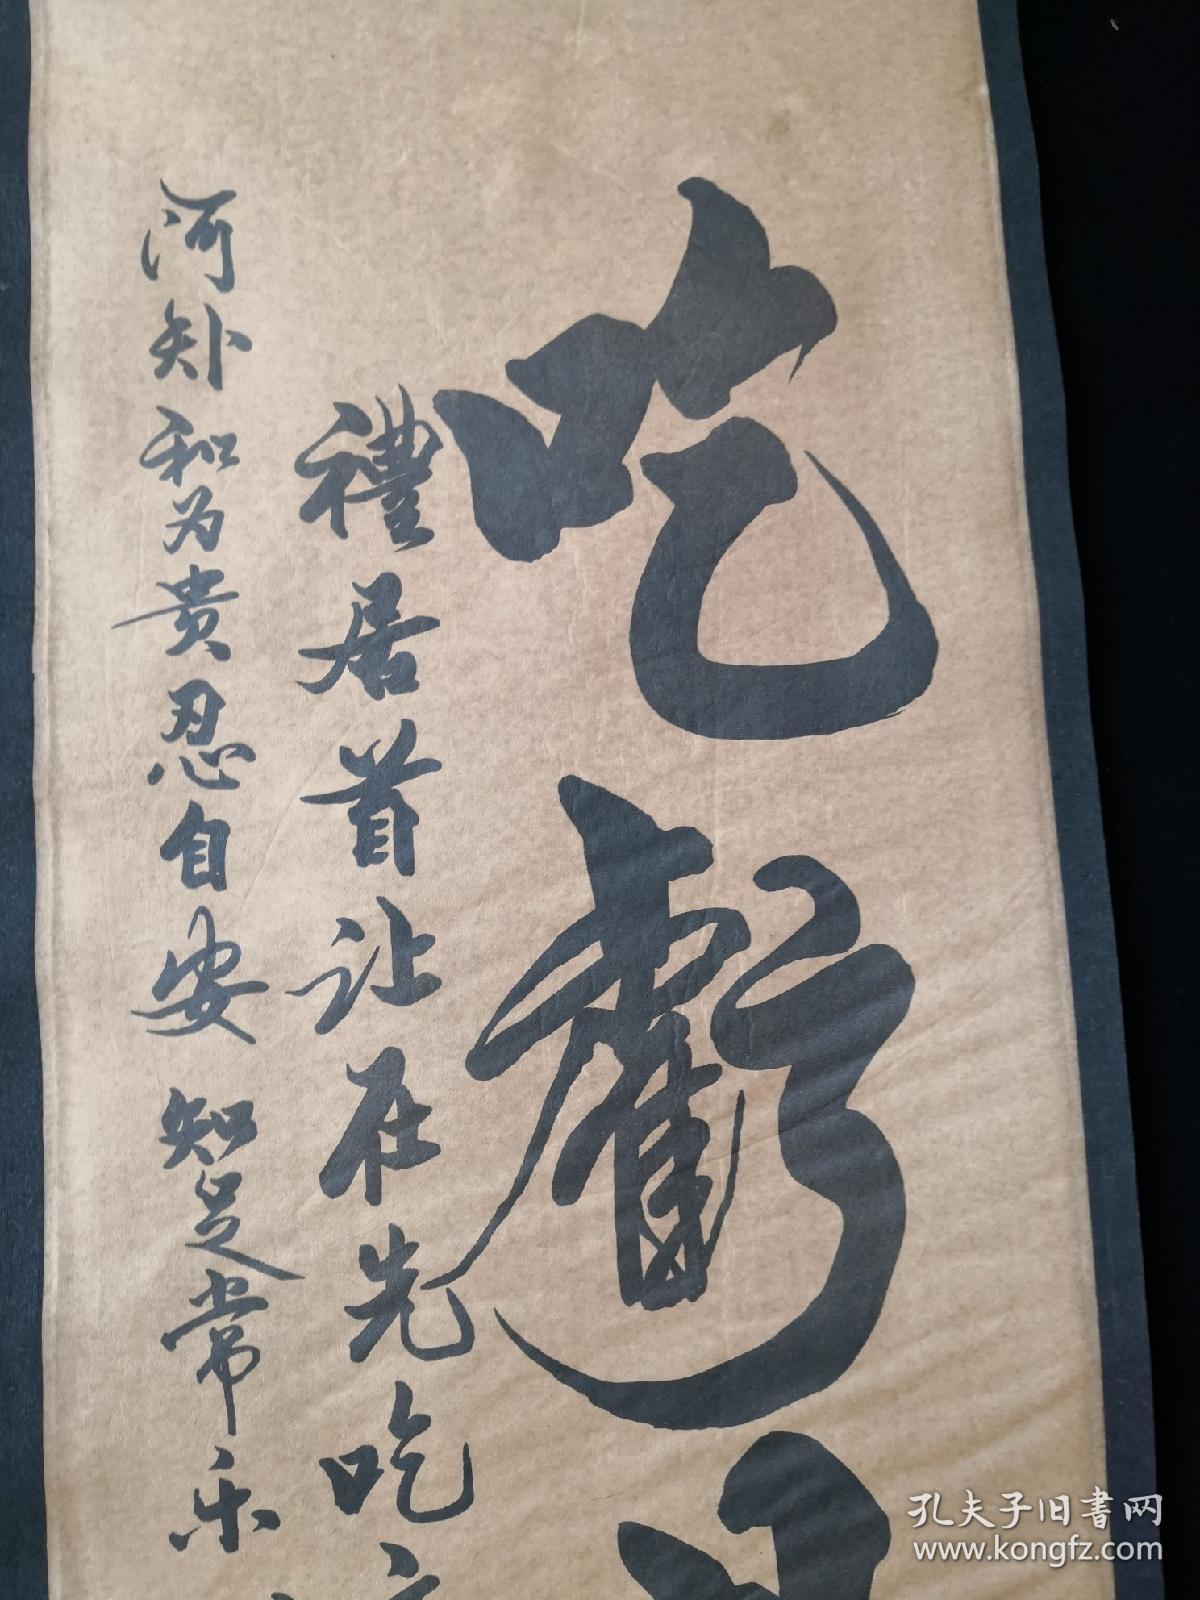 吃虧
禮居首让在先吃
河卦和为贵忍自安知足常乐
孔夫子旧書网
www.kongfz.com